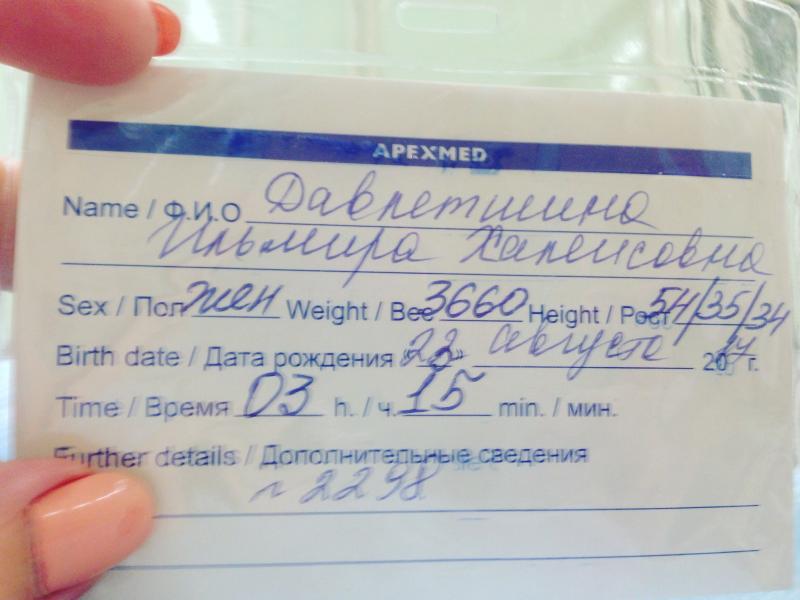 APEXMED
Name / Ф.И.О Давлетшина
Ильмира Халисовна
Sex / Пол жен Weight / Вес 3660 Height / Рост 54/35/34
Birth date / Дата рождения "23" августа 2017 г.
Time / Время 03 h. / ч. 15 min. / мин.
Further details / Дополнительные сведения
2298